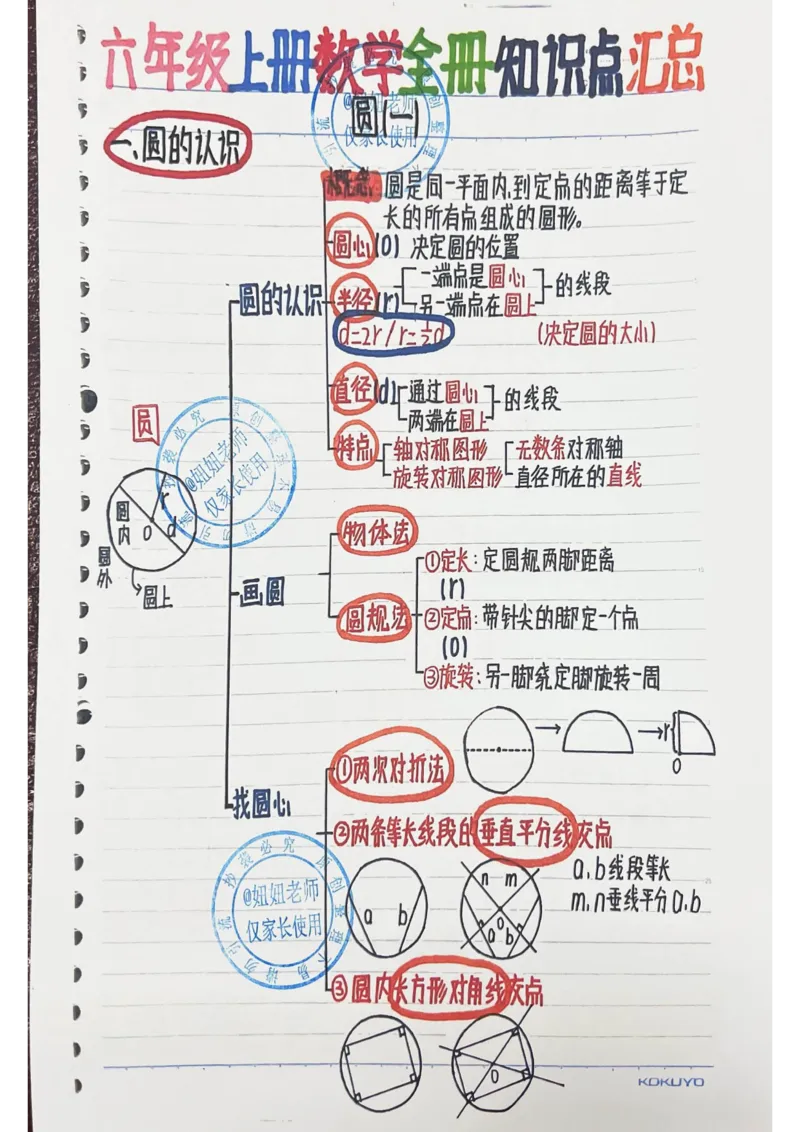 六年级上册数学全册知识点汇总
圆(一)
一、圆的认识
概念: 圆是同一平面内,到定点的距离等于定
长的所有点组成的图形。
圆心(O) 决定圆的位置
圆的认识
半径(r) 一端点是圆心 的线段
另一端点在圆上
d=2r/r=½d (决定圆的大小)
直径(d) 通过圆心 的线段
两端在圆上
特点 轴对称图形 无数条对称轴
旋转对称图形 直径所在的直线
圆
r
圆内 O d
圆外
圆上
画圆
物体法
圆规法
①定长: 定圆规两脚距离
(r)
②定点: 带针尖的脚定一个点
(O)
③旋转: 另一脚绕定脚旋转一周
找圆心
①两次对折法
r
O
②两条等长线段的垂直平分线交点
a b
n m
a O b
a、b线段等长
m、n垂线平分a、b
③圆内长方形对角线交点
O
KOKUYO
@妞妞老师
仅家长使用
@妞妞老师
仅家长使用
@妞妞老师
仅家长使用